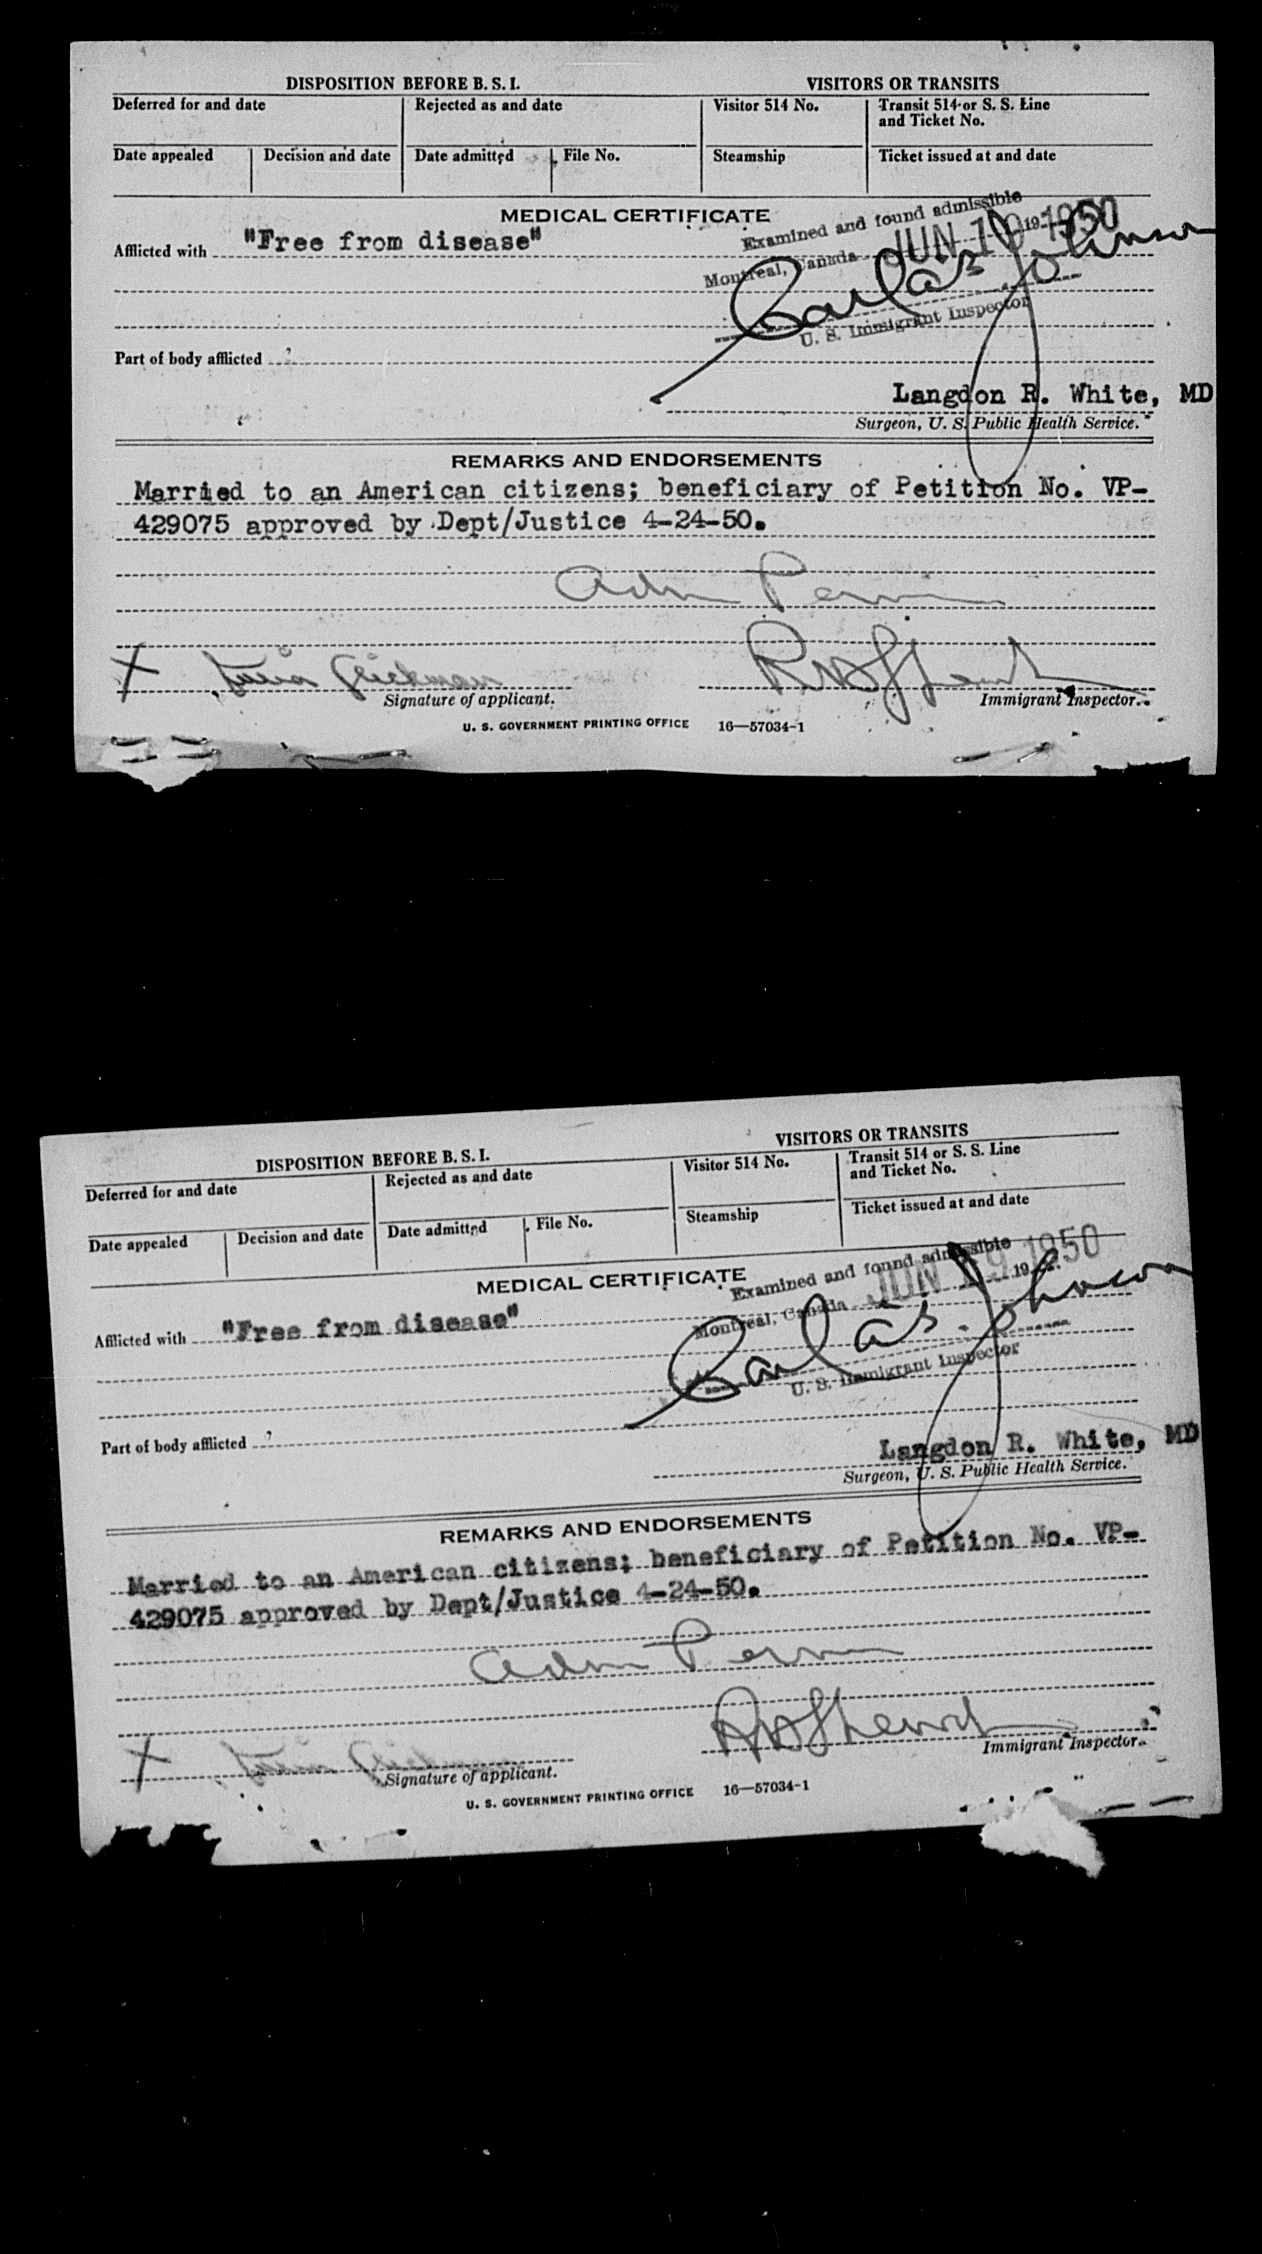 DISPOSITION BEFORE B. S. I.
VISITORS OR TRANSITS
Deferred for and date
Rejected as and date
Visitor 514 No.
Transit 514 or S. S. Line
and Ticket No.
Date appealed
Decision and date
Date admitted
File No.
Steamship
Ticket issued at and date
MEDICAL CERTIFICATE
Examined and found admissible
Afflicted with "Free from disease"
Montreal, Canada JUN 19 19 1950
U. S. Immigrant Inspector
Part of body afflicted
Langdon R. White, MD
Surgeon, U. S. Public Health Service.
REMARKS AND ENDORSEMENTS
Married to an American citizens; beneficiary of Petition No. VP-
429075 approved by Dept/Justice 4-24-50.
Adm Perm
X
Signature of applicant.
Immigrant Inspector.
U. S. GOVERNMENT PRINTING OFFICE 16—57034-1
DISPOSITION BEFORE B. S. I.
VISITORS OR TRANSITS
Deferred for and date
Rejected as and date
Visitor 514 No.
Transit 514 or S. S. Line
and Ticket No.
Date appealed
Decision and date
Date admitted
File No.
Steamship
Ticket issued at and date
MEDICAL CERTIFICATE
Examined and found admissible
Afflicted with "Free from disease"
Montreal, Canada JUN 19 19 1950
U. S. Immigrant Inspector
Part of body afflicted
Langdon R. White, MD
Surgeon, U. S. Public Health Service.
REMARKS AND ENDORSEMENTS
Married to an American citizens; beneficiary of Petition No. VP-
429075 approved by Dept/Justice 4-24-50.
Adm Perm
X
Signature of applicant.
Immigrant Inspector.
U. S. GOVERNMENT PRINTING OFFICE 16—57034-1